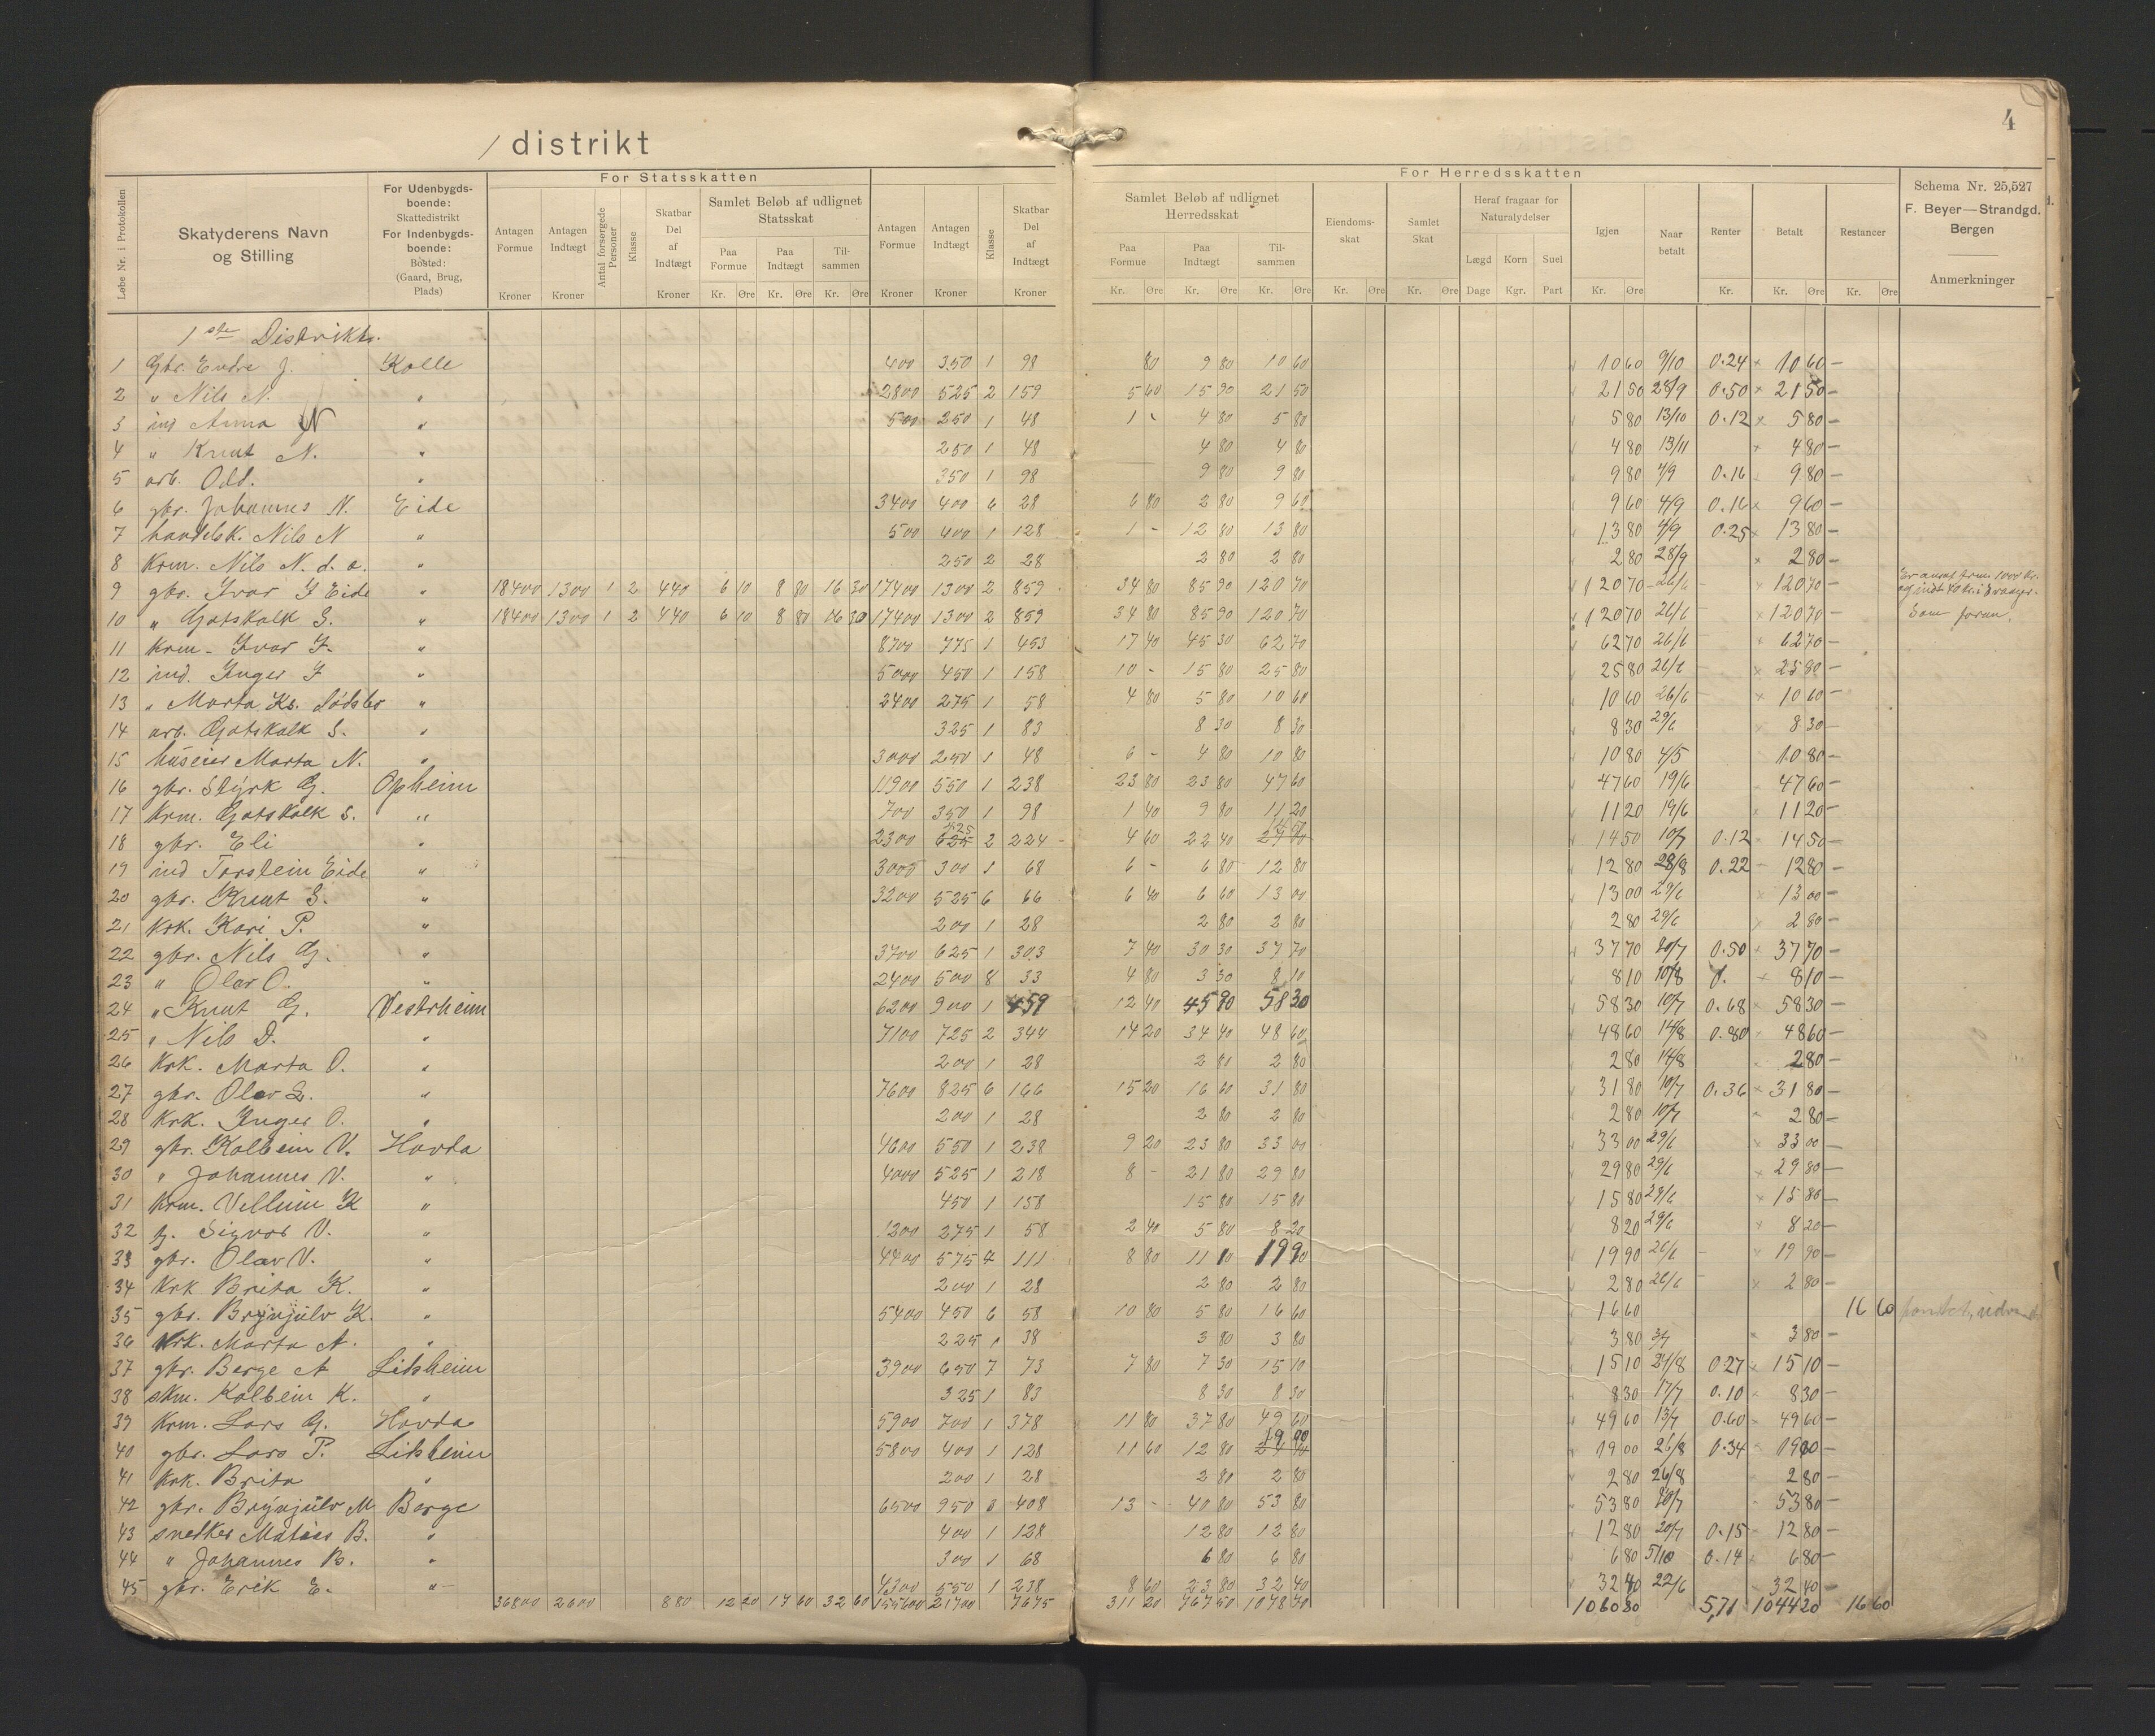 4
/ distrikt
For Statsskatten
For Herredsskatten
Løbe Nr. i Protokollen
Skatyderens Navn og Stilling
For Udenbygdsboende: Skattedistrikt For Indenbygdsboende: Bosted: (Gaard, Brug, Plads)
Antagen Formue Kroner
Antagen Indtægt Kroner
Antal forsørgede Personer
Klasse
Skatbar Del af Indtægt Kroner
Samlet Beløb af udlignet Statsskat
Paa Formue Kr. Øre
Paa Indtægt Kr. Øre
Tilsammen Kr. Øre
Antagen Formue Kroner
Antagen Indtægt Kroner
Klasse
Skatbar Del af Indtægt Kroner
Samlet Beløb af udlignet Herredsskat
Paa Formue Kr. Øre
Paa Indtægt Kr. Øre
Tilsammen Kr. Øre
Eiendomsskat Kr. Øre
Samlet Skat Kr. Øre
Heraf fragaar for Naturalydelser
Lægd Dage
Korn Kgr.
Suel Part
Igjen Kr. Øre
Naar betalt
Renter Kr.
Betalt Kr. Øre
Restancer Kr. Øre
Schema Nr. 25,527
F. Beyer—Strandgd. Bergen
Anmerkninger
1ste Distrikt.
1 Gbr. Endre J. Kolle 400 350 1 98 80 9 80 10 60 10 60 9/10 0.24 × 10 60 —
2 " Nils N. " 2800 525 2 159 5 60 15 90 21 50 21 50 28/9 0.50 × 21 50 —
3 ind Anna N " 500 250 1 48 1 - 4 80 5 80 5 80 13/10 0.12 × 5 80 —
4 " Knut N. " 250 1 48 4 80 4 80 4 80 13/11 × 4 80 —
5 arb. Odd. " 350 1 98 9 80 9 80 9 80 4/9 0.16 9 80 —
6 gbr. Johannes N. Eide 3400 400 6 28 6 80 2 80 9 60 9 60 4/9 0.16 × 9 60 —
7 handelsk. Nils N " 500 400 1 128 1 - 12 80 13 80 13 80 4/9 0.25 × 13 80 —
8 Krm. Nils N. d. a. " 250 2 28 2 80 2 80 2 80 28/9 × 2 80 —
9 gbr. Ivar I Eide " 18400 1300 1 2 440 6 10 8 80 16 30 17400 1300 2 859 34 80 85 90 120 70 120 70 26/6 × 120 70 —
10 " Gotskalk S. " 18400 1300 1 2 440 6 10 8 80 16 30 17400 1300 2 859 34 80 85 90 120 70 120 70 26/6 × 120 70 — Som foran.
11 Krm - Ivar I. " 8700 775 1 453 17 40 45 30 62 70 62 70 26/6 × 62 70 —
12 ind. Inger I " 5000 450 1 158 10 - 15 80 25 80 25 80 26/6 × 25 80 —
13 " Marta Ks. dødsbo " 2400 275 1 58 4 80 5 80 10 60 10 60 26/6 × 10 60 —
14 arb. Gotskalk S. " 325 1 83 8 30 8 30 8 30 29/6 8 30 —
15 huseier Marta N. " 3000 250 1 48 6 - 4 80 10 80 10 80 4/5 10 80 —
16 gbr. Styrk G. Opheim 11900 550 1 238 23 80 23 80 47 60 47 60 19/6 47 60 —
17 Krm. Gotskalk S. " 700 350 1 98 1 40 9 80 11 20 11 20 19/6 × 11 20 —
18 gbr. Eli " 2300 625 425 2 224 4 60 22 40 14 50 14 50 10/7 0.12 × 14 50 —
19 ind Torstein Eide " 3000 300 1 68 6 - 6 80 12 80 12 80 28/8 0.22 12 80 —
20 gbr. Knut S. " 3200 525 6 66 6 40 6 60 13 00 13 00 29/6 × 13 00 —
21 Krk. Kari P. " 200 1 28 2 80 2 80 2 80 29/6 × 2 80 —
22 gbr. Nils G. " 3700 625 1 303 7 40 30 30 37 70 37 70 20/7 0.50 × 37 70 —
23 " Olav O. " 2400 500 8 33 4 80 3 30 8 10 8 10 10/8 × 8 10 —
24 " Knut G. Vestrheim 6200 900 1 459 12 40 45 90 58 30 58 30 10/7 0.68 × 58 30 —
25 " Nils D. " 7100 725 2 344 14 20 34 40 48 60 48 60 14/8 0.80 × 48 60 —
26 Krk. Marta O. " 200 1 28 2 80 2 80 2 80 14/8 2 80 —
27 gbr. Olav L. " 7600 825 6 166 15 20 16 60 31 80 31 80 10/7 0.36 × 31 80 —
28 Krk. Inger O. " 200 1 28 2 80 2 80 2 80 10/7 × 2 80 —
29 gbr. Kolbein V. Hovda 4600 550 1 238 9 20 23 80 33 00 33 00 29/6 × 33 00 —
30 " Johannes V. " 4000 525 1 218 8 - 21 80 29 80 29 80 29/6 × 29 80 —
31 Krm. Vellum K " 450 1 158 15 80 15 80 15 80 29/6 × 15 80 —
32 Sigvor V. " 1200 275 1 58 2 40 5 80 8 20 8 20 29/6 × 8 20 —
33 gbr. Olav V. " 4400 575 4 111 8 80 11 10 19 90 19 90 26/6 × 19 90 —
34 Krk Brita K. " 200 1 28 2 80 2 80 2 80 26/6 × 2 80 —
35 gbr. Brynjulv K. " 5400 450 6 58 10 80 5 80 16 60 16 60 16 60
36 Krk. Marta A. " 225 1 38 3 80 3 80 3 80 3/7 × 3 80 —
37 gbr. Berge A Lidsheim 3900 650 7 73 7 80 7 30 15 10 15 10 24/8 0.27 × 15 10 —
38 skm. Kolbein K. " 325 1 83 8 30 8 30 8 30 17/7 0.10 8 30 —
39 Krm. Lars G. Hovda 5900 700 1 378 11 80 37 80 49 60 49 60 13/7 0.60 49 60 —
40 gbr. Lars P. Lidsheim 5800 400 1 128 11 60 12 80 19 00 19 00 26/8 0.34 19 00 —
41 Krk. Brita " 200 1 28 2 80 2 80 2 80 26/8 2 80 —
42 gbr. Brynjulv M Berge 6500 950 3 408 13 - 40 80 53 80 53 80 20/7 53 80 —
43 snedker Matias B. " 400 1 128 12 80 12 80 12 80 20/7 0.15 12 80 —
44 " Johannes B. " 300 1 68 6 80 6 80 6 80 5/10 0.14 × 6 80 —
45 gbr. Erik E. " 4300 550 1 238 8 60 23 80 32 40 32 40 22/6 32 40 —
36800 2600 880 12 20 17 60 32 60 155600 21700 7675 311 20 767 50 1078 70 1060 80 5,71 1044 20 16 60